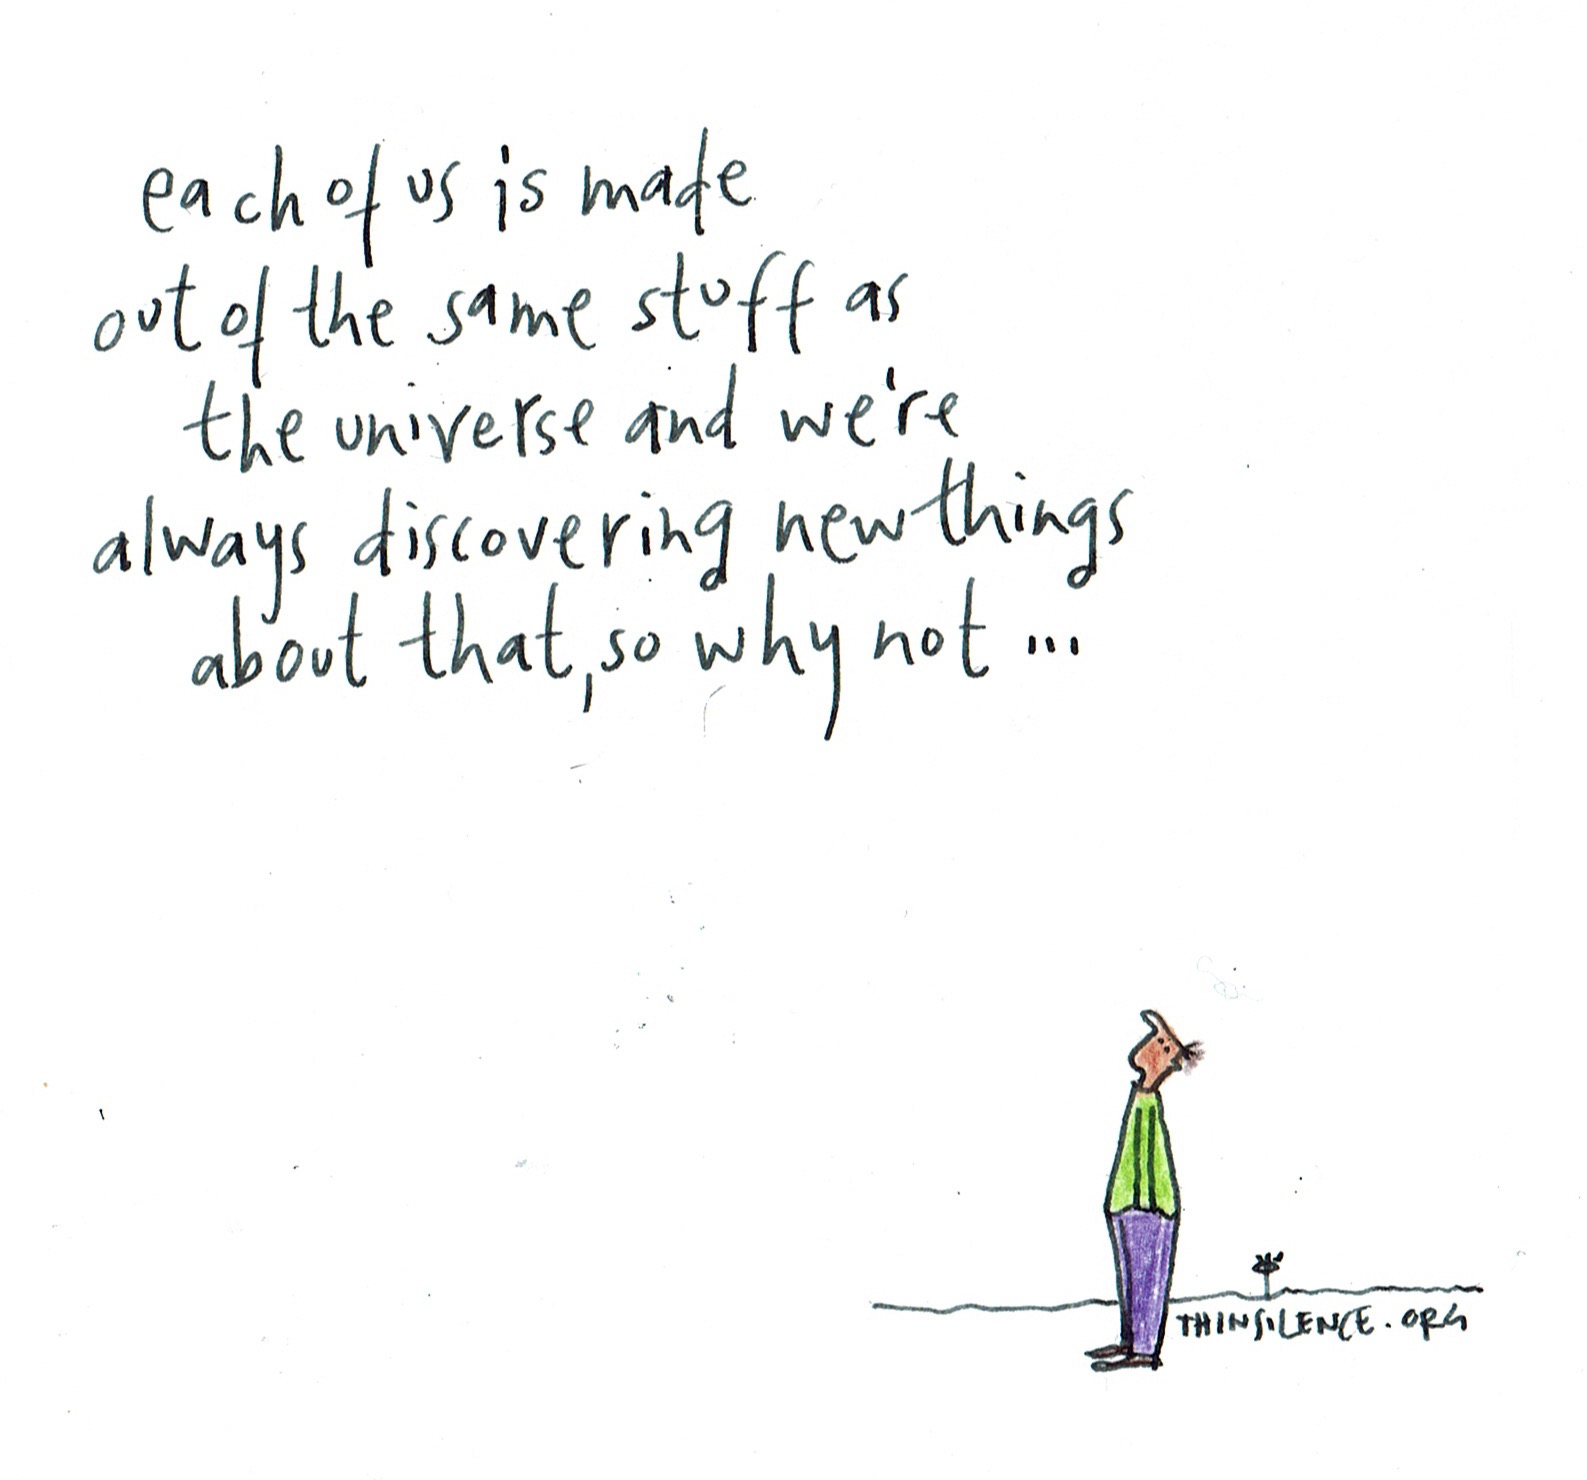 each of us is made
out of the same stuff as
the universe and we're
always discovering new things
about that, so why not ...
THINSILENCE.ORG